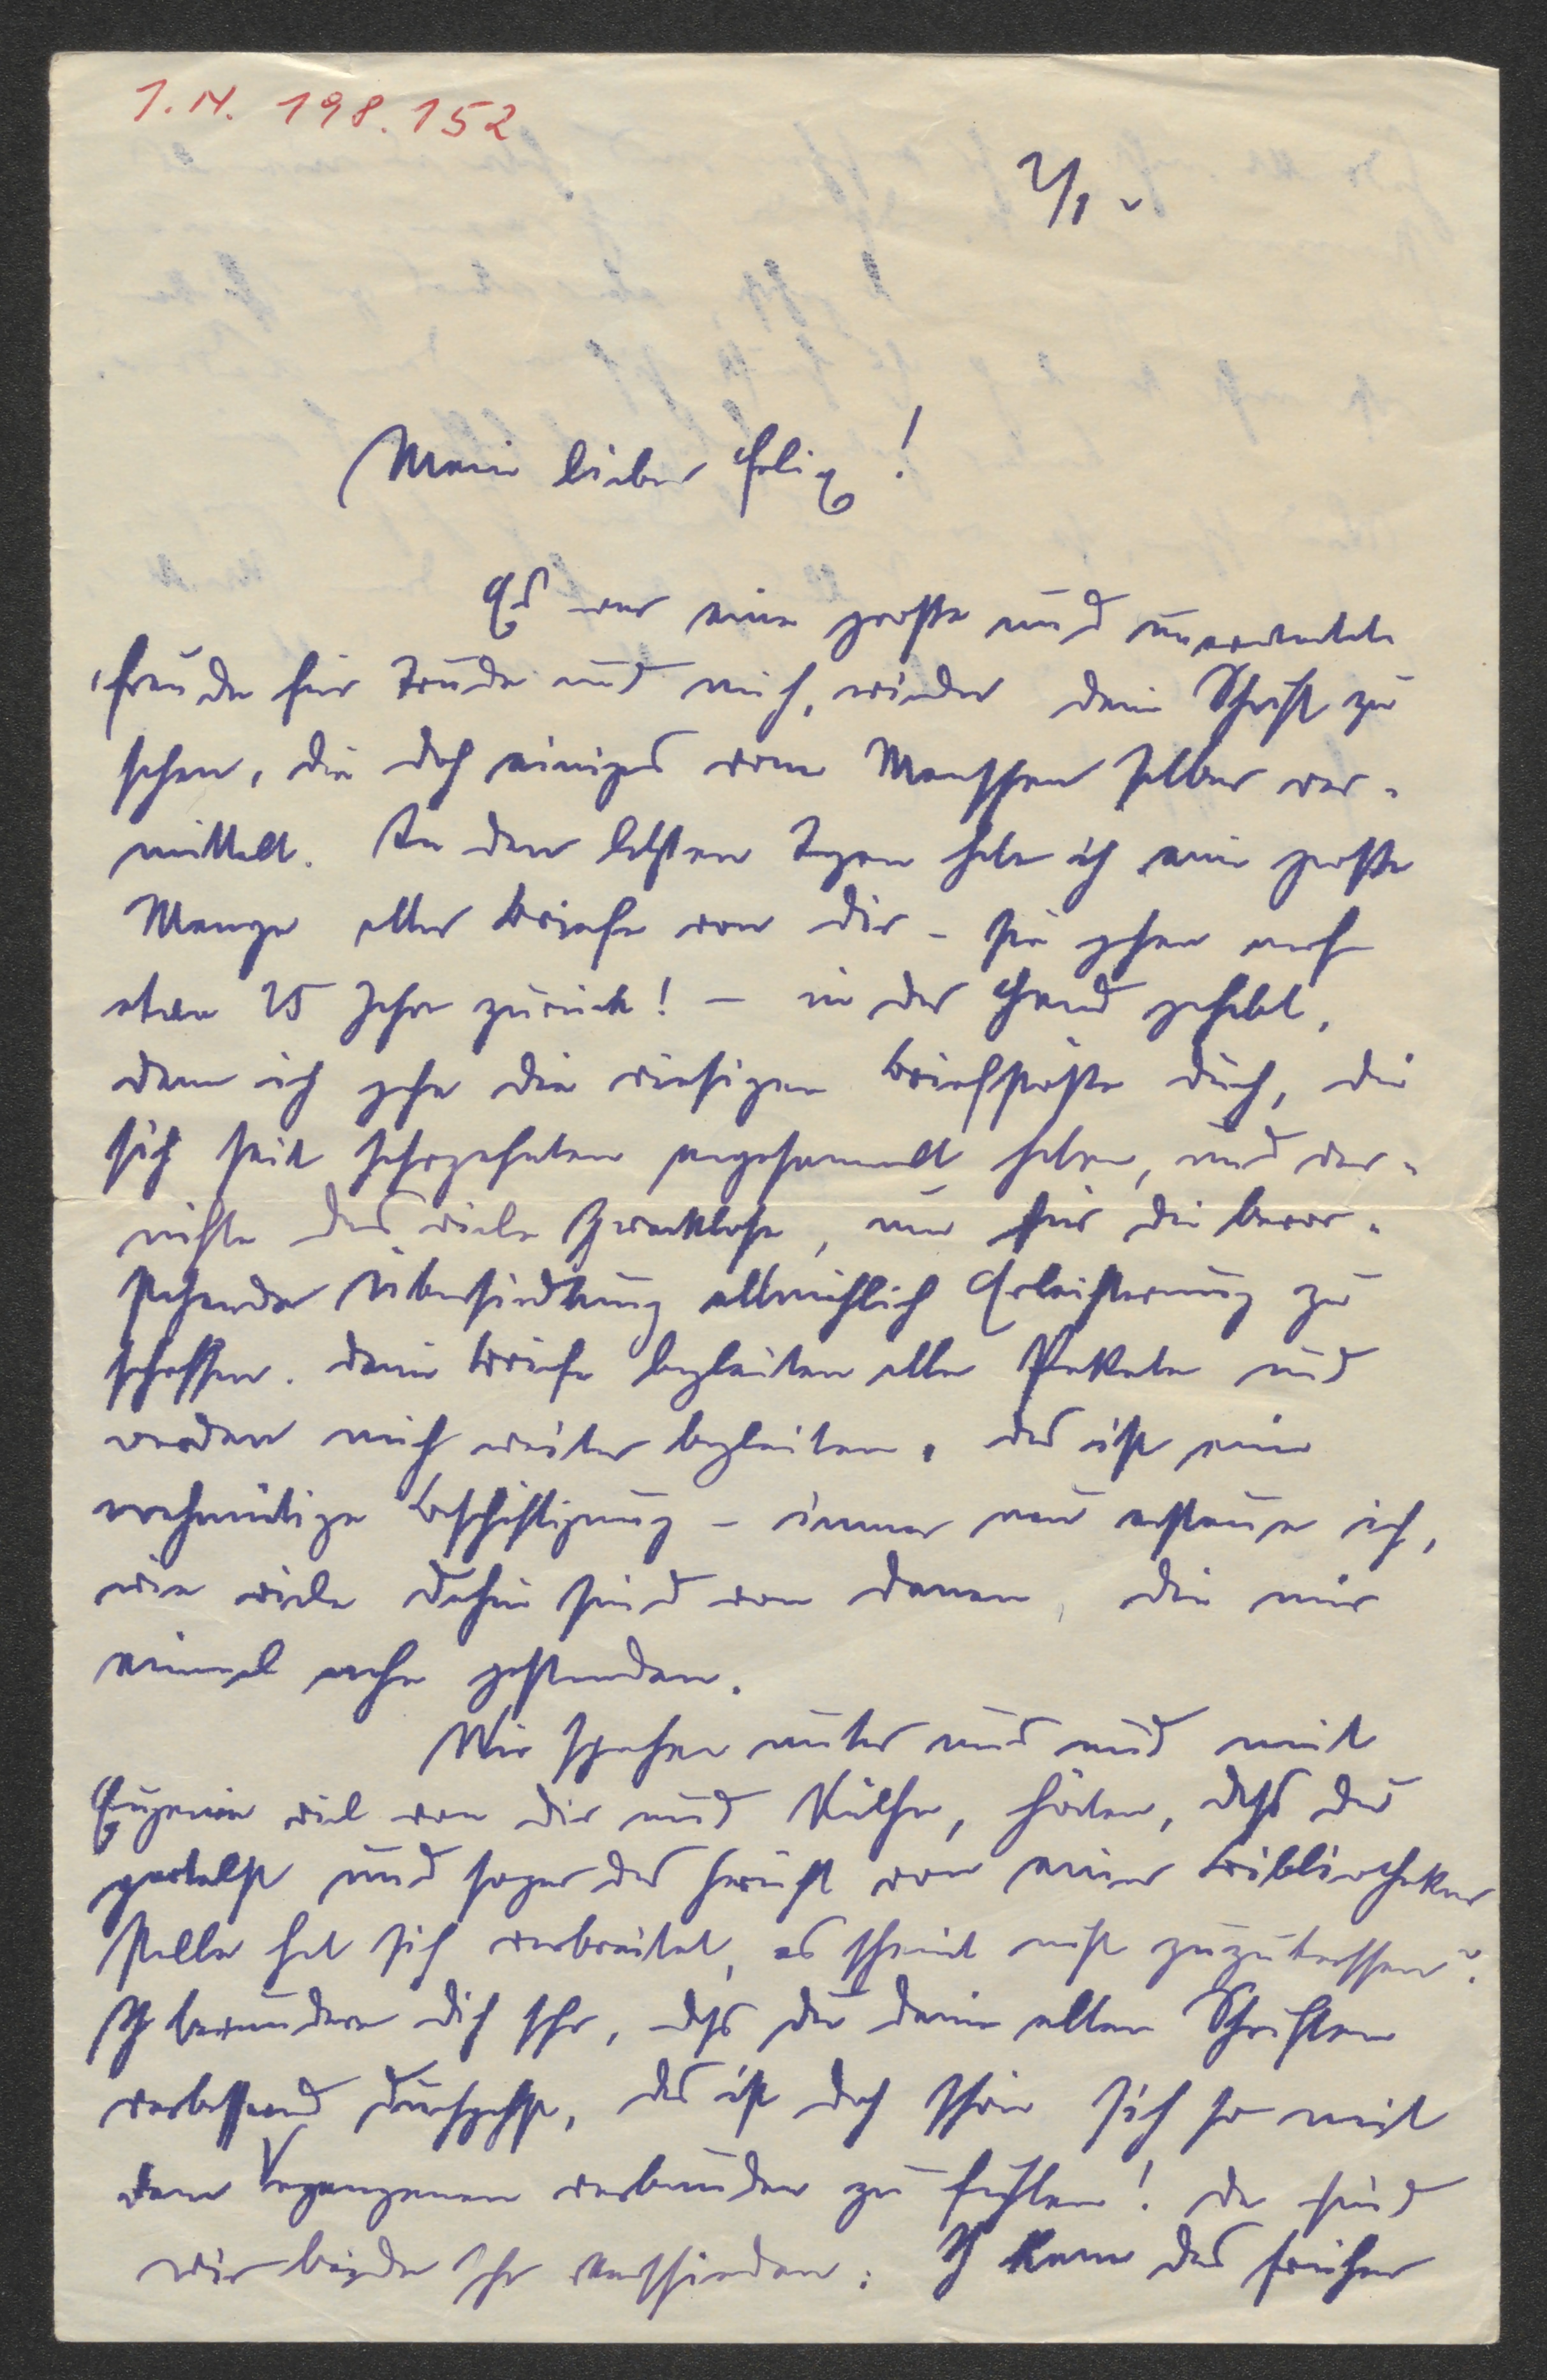 I.N. 198.152
2/1.
Mein lieber Felix!
Es war eine große und unerwartete
Freude für Trude und mich, wieder deine Schrift zu
sehen, die doch einiges vom Menschen selber ver-
mittelt. In den letzten Tagen habe ich eine große
Menge alter Briefe von dir – sie gehen auf
etwa 25 Jahre zurück! – in der Hand gehabt,
denn ich gehe die riesigen Briefstöße durch, die
sich seit Jahrzehnten angesammelt haben, und ver-
nichte das viele Zwecklose, um für die bevor-
stehende Übersiedlung allmählich Erleichterung zu
schaffen. Deine Briefe begleiten alle Pakete und
werden mich weiter begleiten. Das ist eine
wehmütige Beschäftigung – immer neu erstaune ich,
wie viele dahin sind von denen, die mir
einmal nahe gestanden.
Wir sprechen unter uns und mit
Eugenie viel von dir und Käthe, hörten, dass du
arbeitest und sogar das Gerücht von einer Bibliothekar
stelle hat sich verbreitet, es scheint nicht zuzutreffen?
Ich bewundere dich sehr, dass du deine alten Schriften
verbessernd durchgehst, das ist doch schön sich so mit
dem Vergangenen verbunden zu fühlen! Da sind
wir beide sehr verschieden: Ich kann das früher